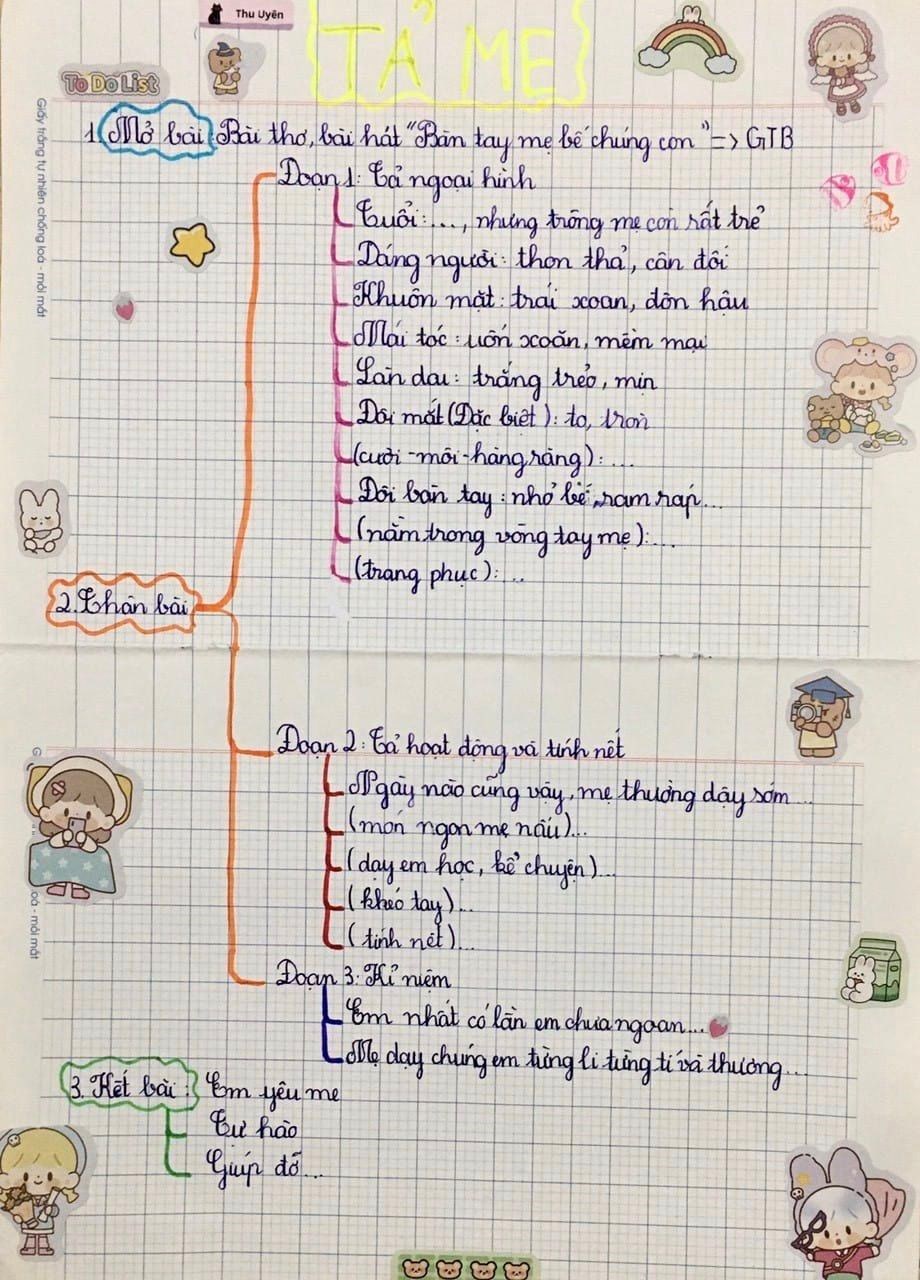 Thu Uyên
TẢ MẸ
To Do List
Giấy trắng tự nhiên chống loá - mỏi mắt
1. Mở bài: Bài thơ, bài hát "Bàn tay mẹ bế chúng con" => GTB
Đoạn 1: Tả ngoại hình
Tuổi: ..., nhưng trông mẹ còn rất trẻ
Dáng người: thon thả, cân đối
Khuôn mặt: trái xoan, đôn hậu
Mái tóc: uốn xoăn, mềm mại
Làn da: trắng trẻo, mịn
Đôi mắt (Đặc biệt): to, tròn
(cười - môi - hàng răng): ...
Đôi bàn tay: nhỏ bé, ram ráp...
(nằm trong vòng tay mẹ): ...
(trang phục): ...
2. Thân bài
Đoạn 2: Tả hoạt động và tính nết
Ngày nào cũng vậy, mẹ thường dậy sớm...
(món ngon mẹ nấu)...
(dạy em học, kể chuyện)...
(khéo tay)...
(tính nết)...
loá - mỏi mắt
Đoạn 3: Kỉ niệm
Em nhất có lần em chưa ngoan...
Mẹ dạy chúng em từng li từng tí và thương...
3. Kết bài: Em yêu mẹ
Tự hào
Giúp đỡ...